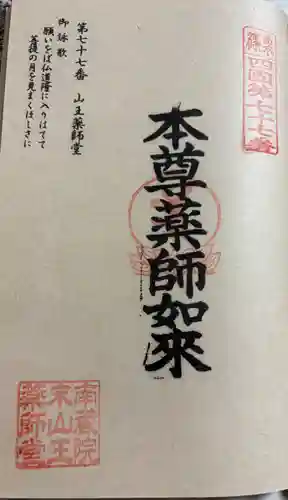 四国第七十七番
本尊薬師如來
第七十七番　山王薬師堂
御詠歌
願いをば仏道隆に入りはてて
菩提の月を見まくほしさに
南蔵院
末山王
薬師堂